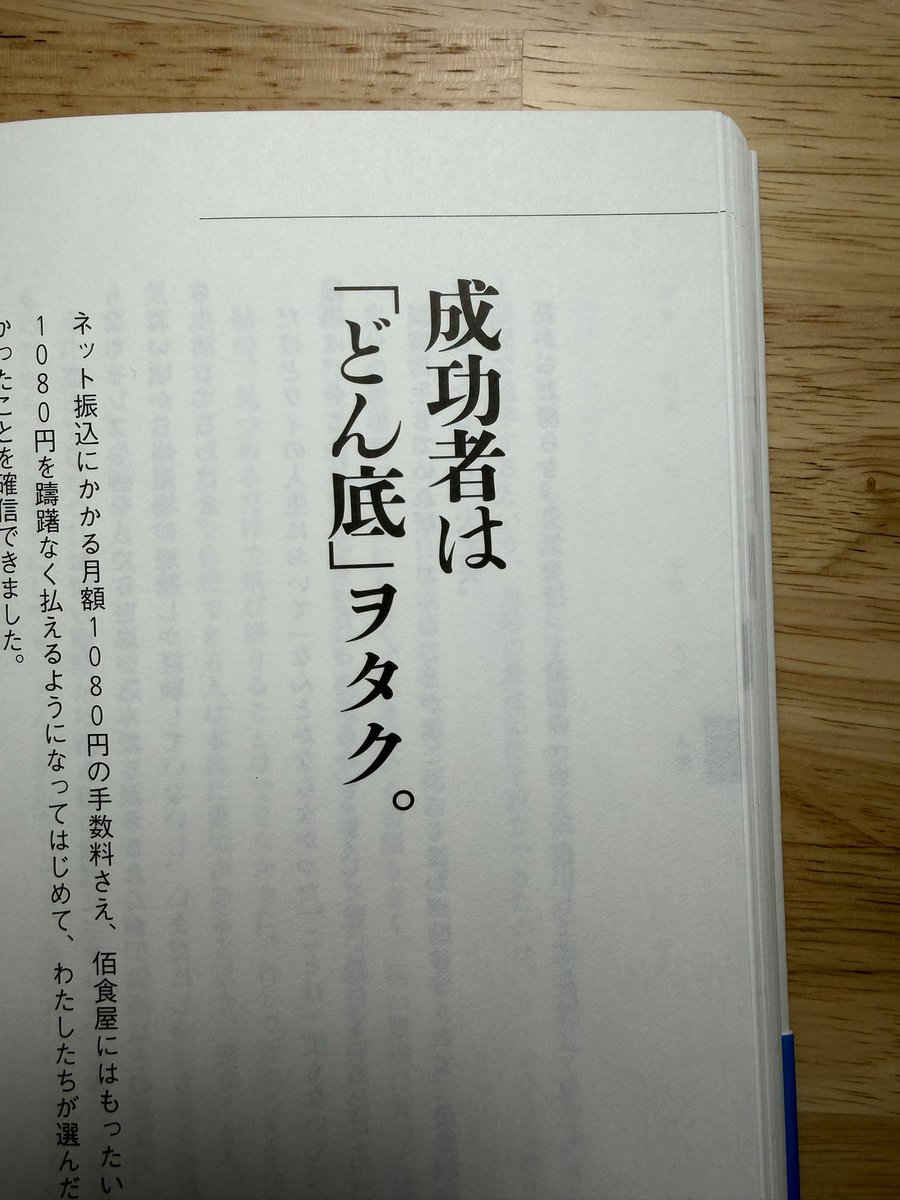 成功者は
「どん底」ヲタク。
ネット振込にかかる月額1080円の手数料さえ、佰食屋にはもったい
1080円を躊躇なく払えるようになってはじめて、わたしたちが選んだ
かったことを確信できました。